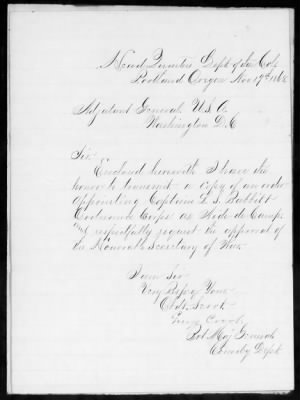 Head Quarters Dept of the Col.
Portland Oregon Nov 17th 1868
Adjutant General, U.S.A.
Washington D.C
Sir:
Enclosed herewith I have the
honor to transmit a copy of an order
appointing Captain L. S. Babbitt
Ordnance Corps as Aide-de-Camp
and respectfully request the approval of
the Honorable Secretary of War
I am Sir
Very Respy Yours
Obdt. Servt
George Crook
Bvt. Maj General
Comdg Dept